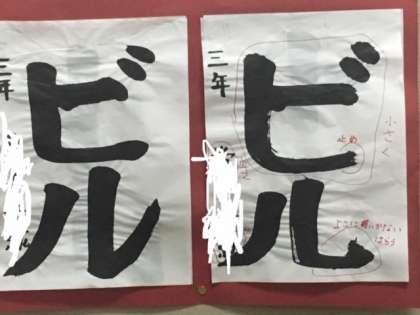 ビル
三年
ビル
三年
小さく
止め
はらう